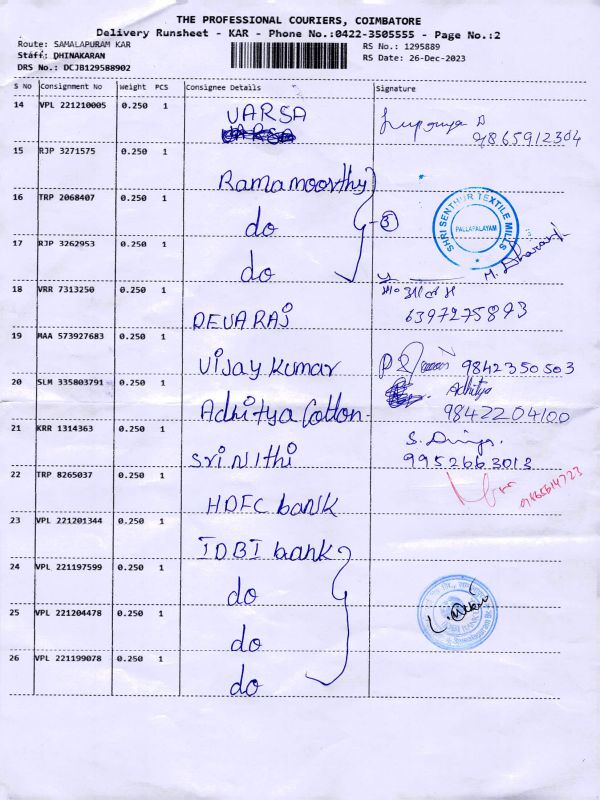 THE PROFESSIONAL COURIERS, COIMBATORE
Delivery Runsheet - KAR - Phone No.:0422-3505555 - Page No.:2
Route: SAMALAPURAM KAR
RS No.: 1295889
Staff: DHINAKARAN
RS Date: 26-Dec-2023
DRS No.: DCJB1295B8902
S No Consignment No Weight PCS Consignee Details Signature
14 VPL 221210005 0.250 1 VARSA
9865912304
15 RJP 3271575 0.250 1 Ramamoorthy
16 TRP 2068407 0.250 1 do
3
SHRI SENTHUR TEXTILE MILLS
PALLAPALAYAM
17 RJP 3262953 0.250 1 do
M. Dharani
18 VRR 7313250 0.250 1 DEVARAJ
6397275893
19 MAA 573927683 0.250 1 Vijay Kumar
9842350503
20 SLM 335803791 0.250 1 Adhitya Cotton
Adhitya
9842204100
21 KRR 1314363 0.250 1 Sri Nithi
S. Divya
9952663013
22 TRP 8265037 0.250 1 HDFC bank
23 VPL 221201344 0.250 1 IDBI bank
24 VPL 221197599 0.250 1 do
25 VPL 221204478 0.250 1 do
26 VPL 221199078 0.250 1 do